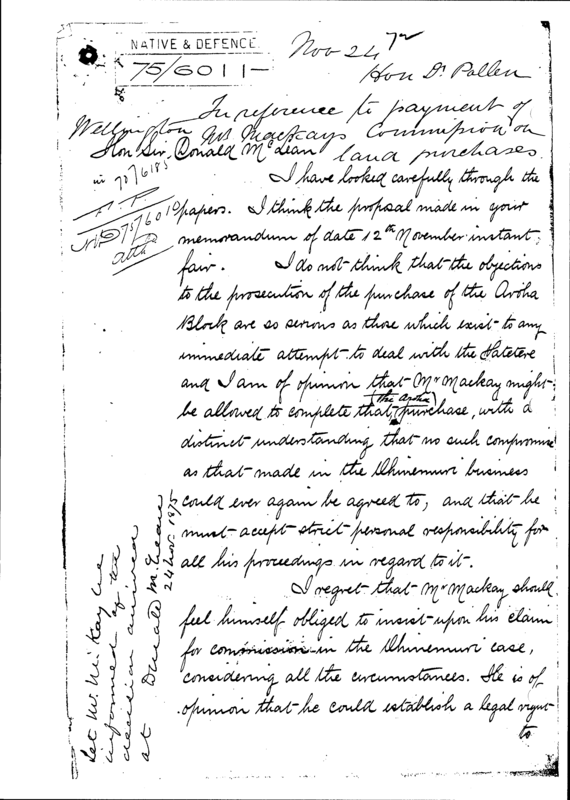 NATIVE & DEFENCE.
75/6011-
Nov 24
Hon Dr Pollen
In reference to payment of
Wellington Mr Mackays Commission on
Hon Sir Donald McLean land purchases
in 75/6185
N&D 75/6010
attd
I have looked carefully through the
papers. I think the proposal made in your
memorandum of date 12th November instant,
fair. I do not think that the objections
to the prosecution of the purchase of the Aroha
Block are so serious as those which exist to any
immediate attempt to deal with the Patetere
and I am of opinion that Mr Mackay might
(the Aroha)
be allowed to complete that purchase, with a
distinct understanding that no such compromise
as that made in the Ohinemuri business
could ever again be agreed to, and that he
must accept strict personal responsibility for
all his proceedings in regard to it.
I regret that Mr Mackay should
feel himself obliged to insist upon his claim
for commission in the Ohinemuri case,
considering all the circumstances. He is of
opinion that he could establish a legal right
to
Let Mr. McKay be
informed of the
decision arrived
at
Donald McLean
24 Nov. 1875